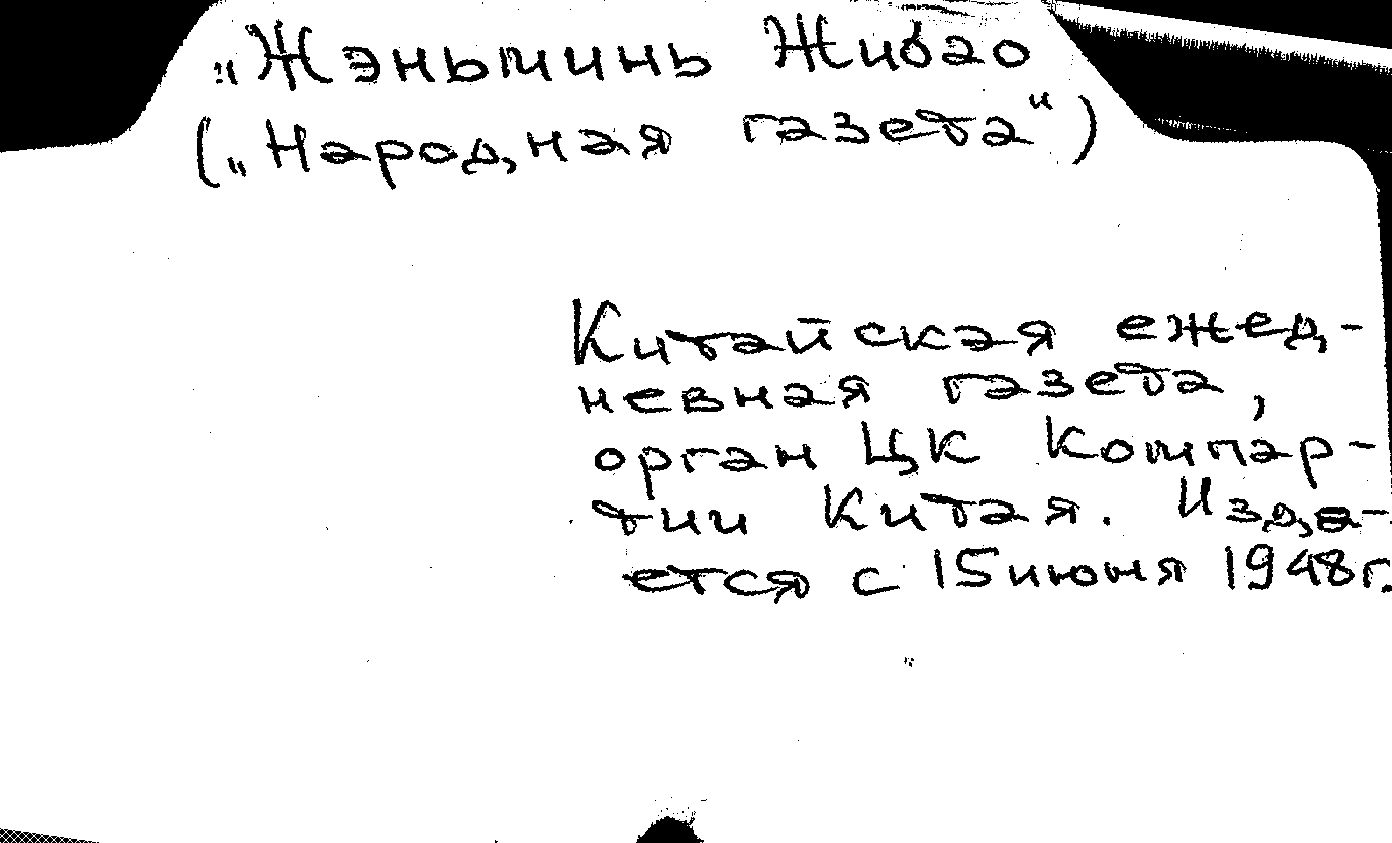 „Жэньминь Жибао
(„Народная газета“)
Китайская ежед-
невная газета,
орган ЦК Компар-
тии Китая. Изда-
ется с 15 июня 1948г.